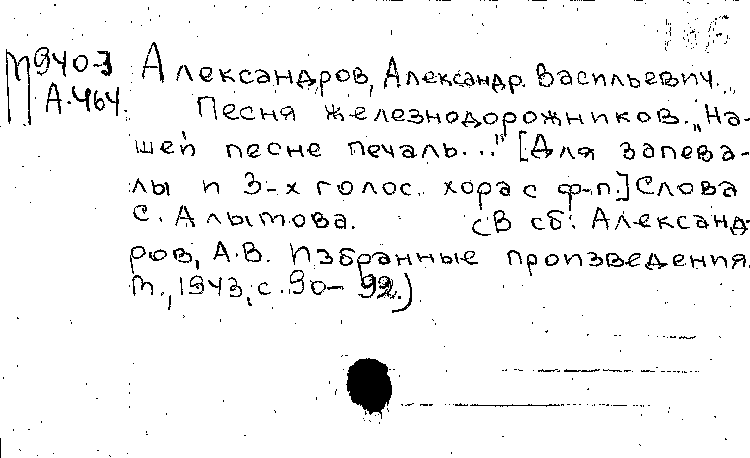 М940-3 Александров, Александр Васильевич.
А-464. Песня железнодорожников. „На-
шей песне печаль..." [Для запева-
лы и 3-х голос. хора с ф-п.] Слова
С. Алымова. (В сб: Александ-
ров, А.В. Избранные произведения.
М., 1943, с. 90-92.)